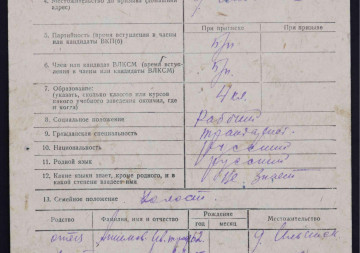 4. Местожительство до призыва (домашний адрес)
При приписке
При призыве
5. Партийность (время вступления в члены или кандидаты ВКП(б)
б/п.
6. Член или кандидат ВЛКСМ (время вступления в члены или кандидаты ВЛКСМ)
б/п.
7. Образование:
(указать, сколько классов или курсов какого учебного заведения окончил, где и когда)
4 кл.
8. Социальное положение
Рабочий
9. Гражданская специальность
10. Национальность
русский
11. Родной язык
русский
12. Какие языки знает, кроме родного, и в какой степени владеет ими
не знает
13. Семейное положение
Холост.
Родство
Фамилия, имя и отчество
Рождения
год
месяц
Местожительство
отец
62
д.